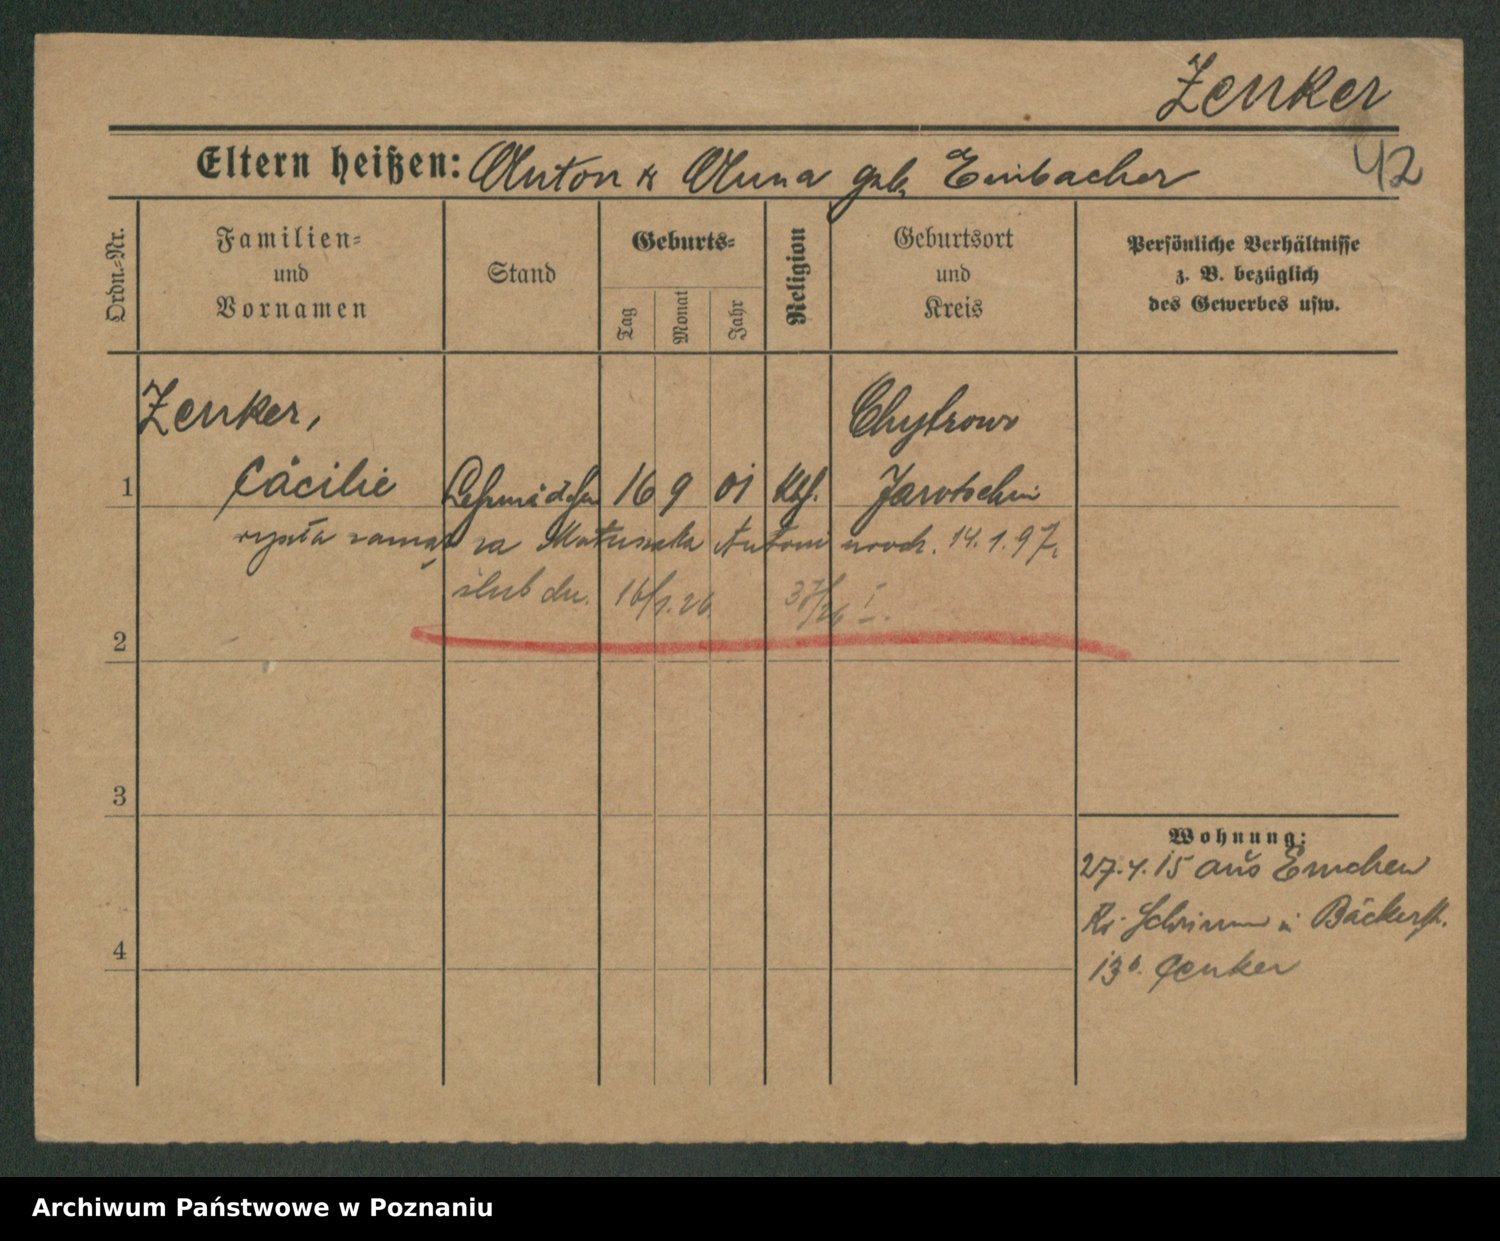 Zenker
42
Eltern heißen: Anton & Anna geb. Embacher
Ordn.-Nr.
Familien-
und
Vornamen
Stand
Geburts-
Tag
Monat
Jahr
Religion
Geburtsort
und
Kreis
Persönliche Verhältnisse
z. B. bezüglich
des Gewerbes usw.
Zenker,
Chytrowo
1 Cäcilie Lehrmädchen 16 9 01 kth. Jarotschin
wyszła zamąż za Matuszaka Antoni urodz. 14.1.97
ślub dn. 16/1.26 37/26 I.
2
3
4
Wohnung:
27.4.15 aus Emchen
Kr. Schrimm Bäckerstr.
13 b. Zenker
Archiwum Państwowe w Poznaniu